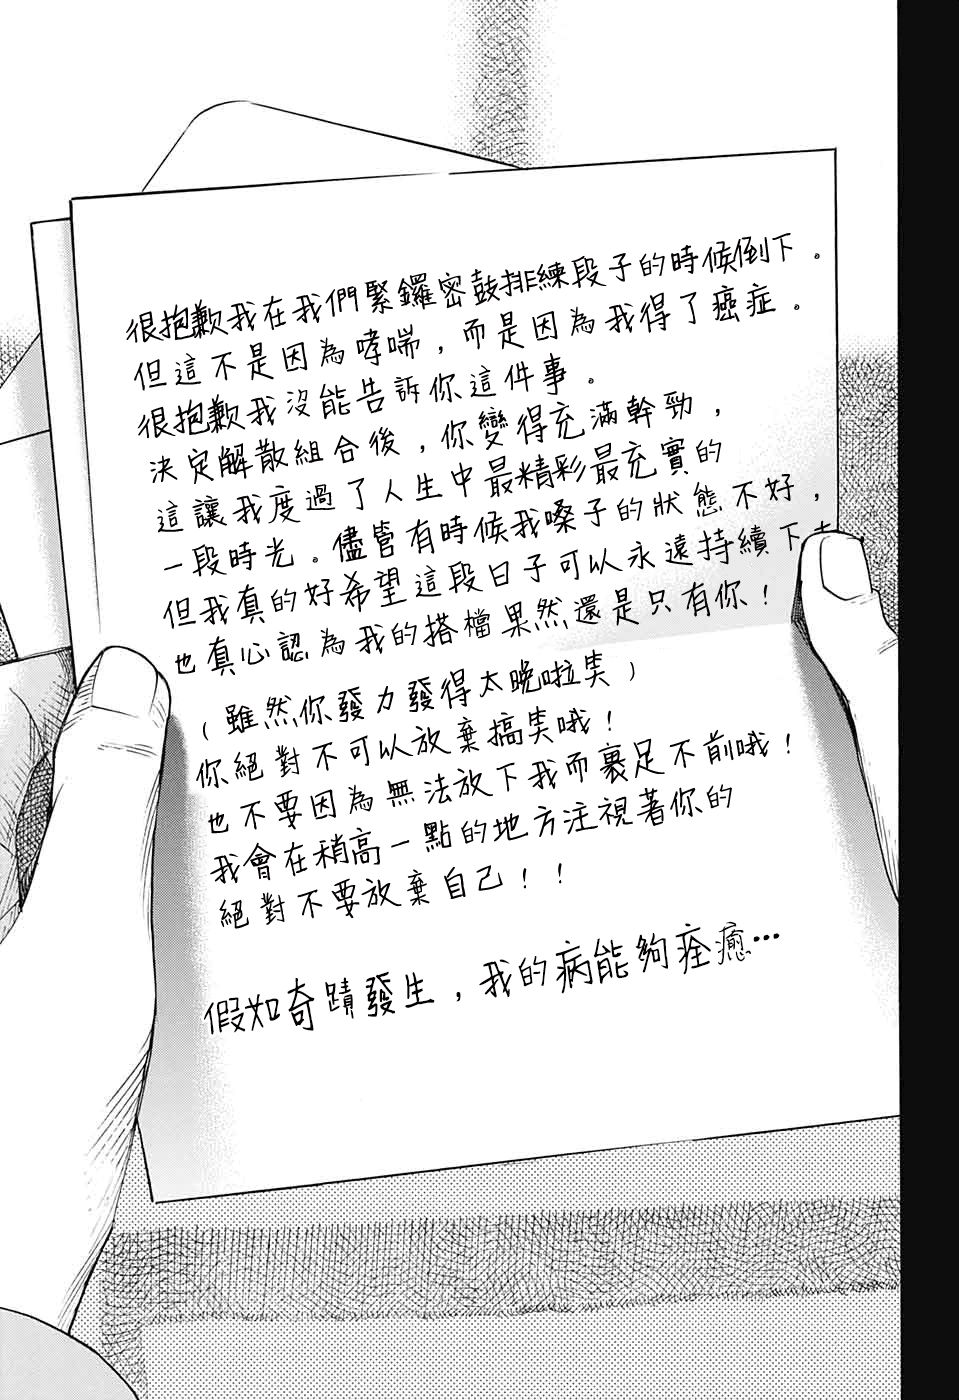 很抱歉我在我們緊鑼密鼓排練段子的時候倒下。
但這不是因為哮喘，而是因為我得了癌症。
很抱歉我沒能告訴你這件事。
決定解散組合後，你變得充滿幹勁，
這讓我度過了人生中最精彩最充實的
一段時光。儘管有時候我嗓子的狀態不好，
但我真的好希望這段日子可以永遠持續下去，
也真心認為我的搭檔果然還是只有你！
（雖然你發力發得太晚啦笑）
你絕對不可以放棄搞笑哦！
也不要因為無法放下我而裹足不前哦！
我會在稍高一點的地方注視著你的
絕對不要放棄自己！！
假如奇蹟發生，我的病能夠痊癒…